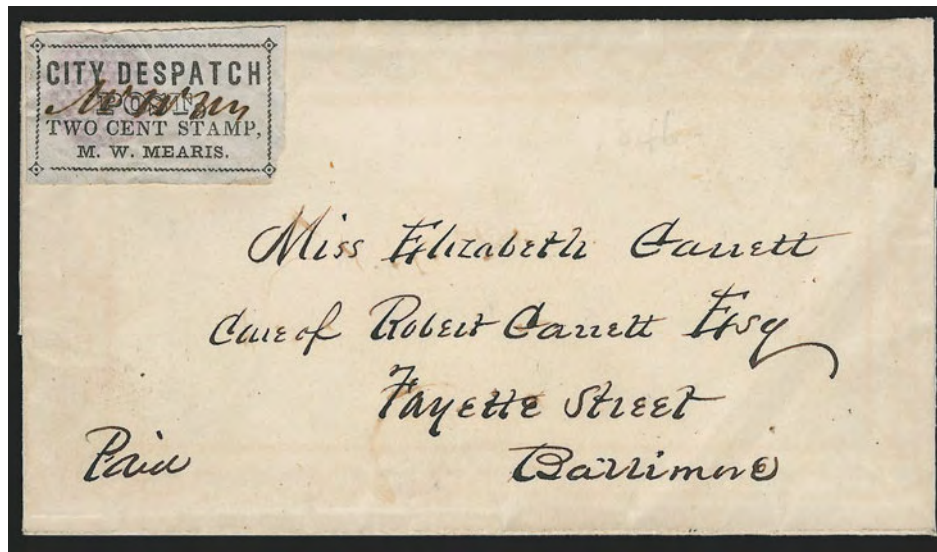 CITY DESPATCH
POST,
TWO CENT STAMP,
M. W. MEARIS.
Miss Elizabeth Garrett
Care of Robert Garrett Esq
Fayette Street
Paid Baltimore